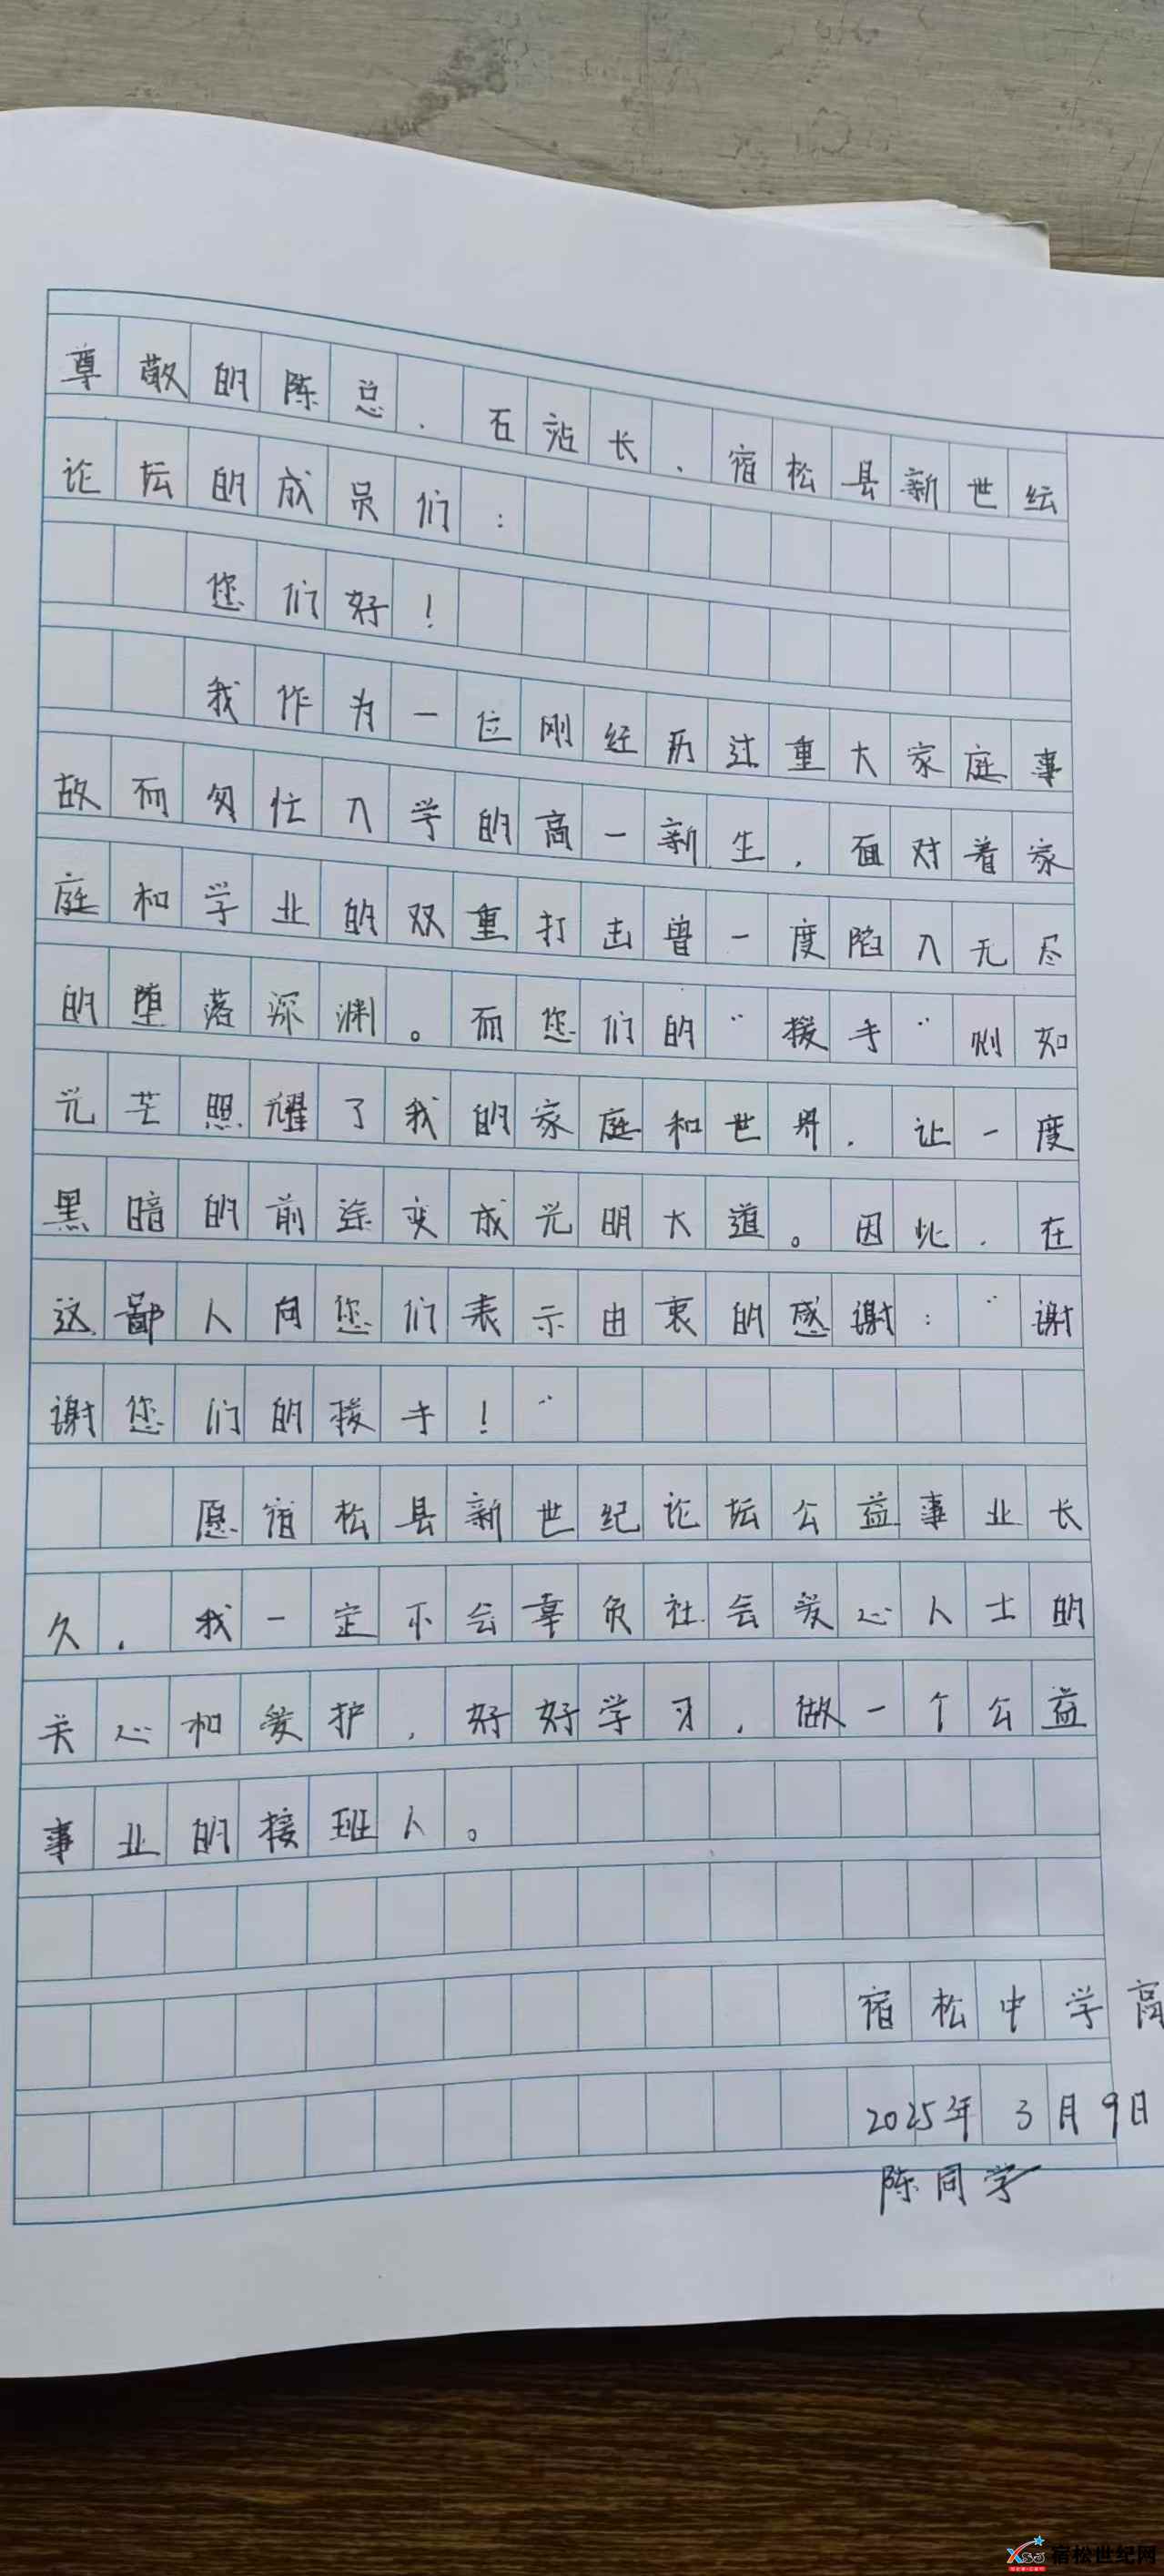 尊敬的陈总、石站长、宿松县新世纪
论坛的成员们：
您们好！
我作为一位刚经历过重大家庭事
故而匆忙入学的高一新生，面对着家
庭和学业的双重打击曾一度陷入无尽
的堕落深渊。而您们的“援手”则如
光芒照耀了我的家庭和世界，让一度
黑暗的前途变成光明大道。因此，在
这鄙人向您们表示由衷的感谢：“谢
谢您们的援手！”
愿宿松县新世纪论坛公益事业长
久，我一定不会辜负社会爱心人士的
关心和爱护，好好学习，做一个公益
事业的接班人。
宿松中学高
2025年3月9日
陈同学
XSSJ 宿松世纪网